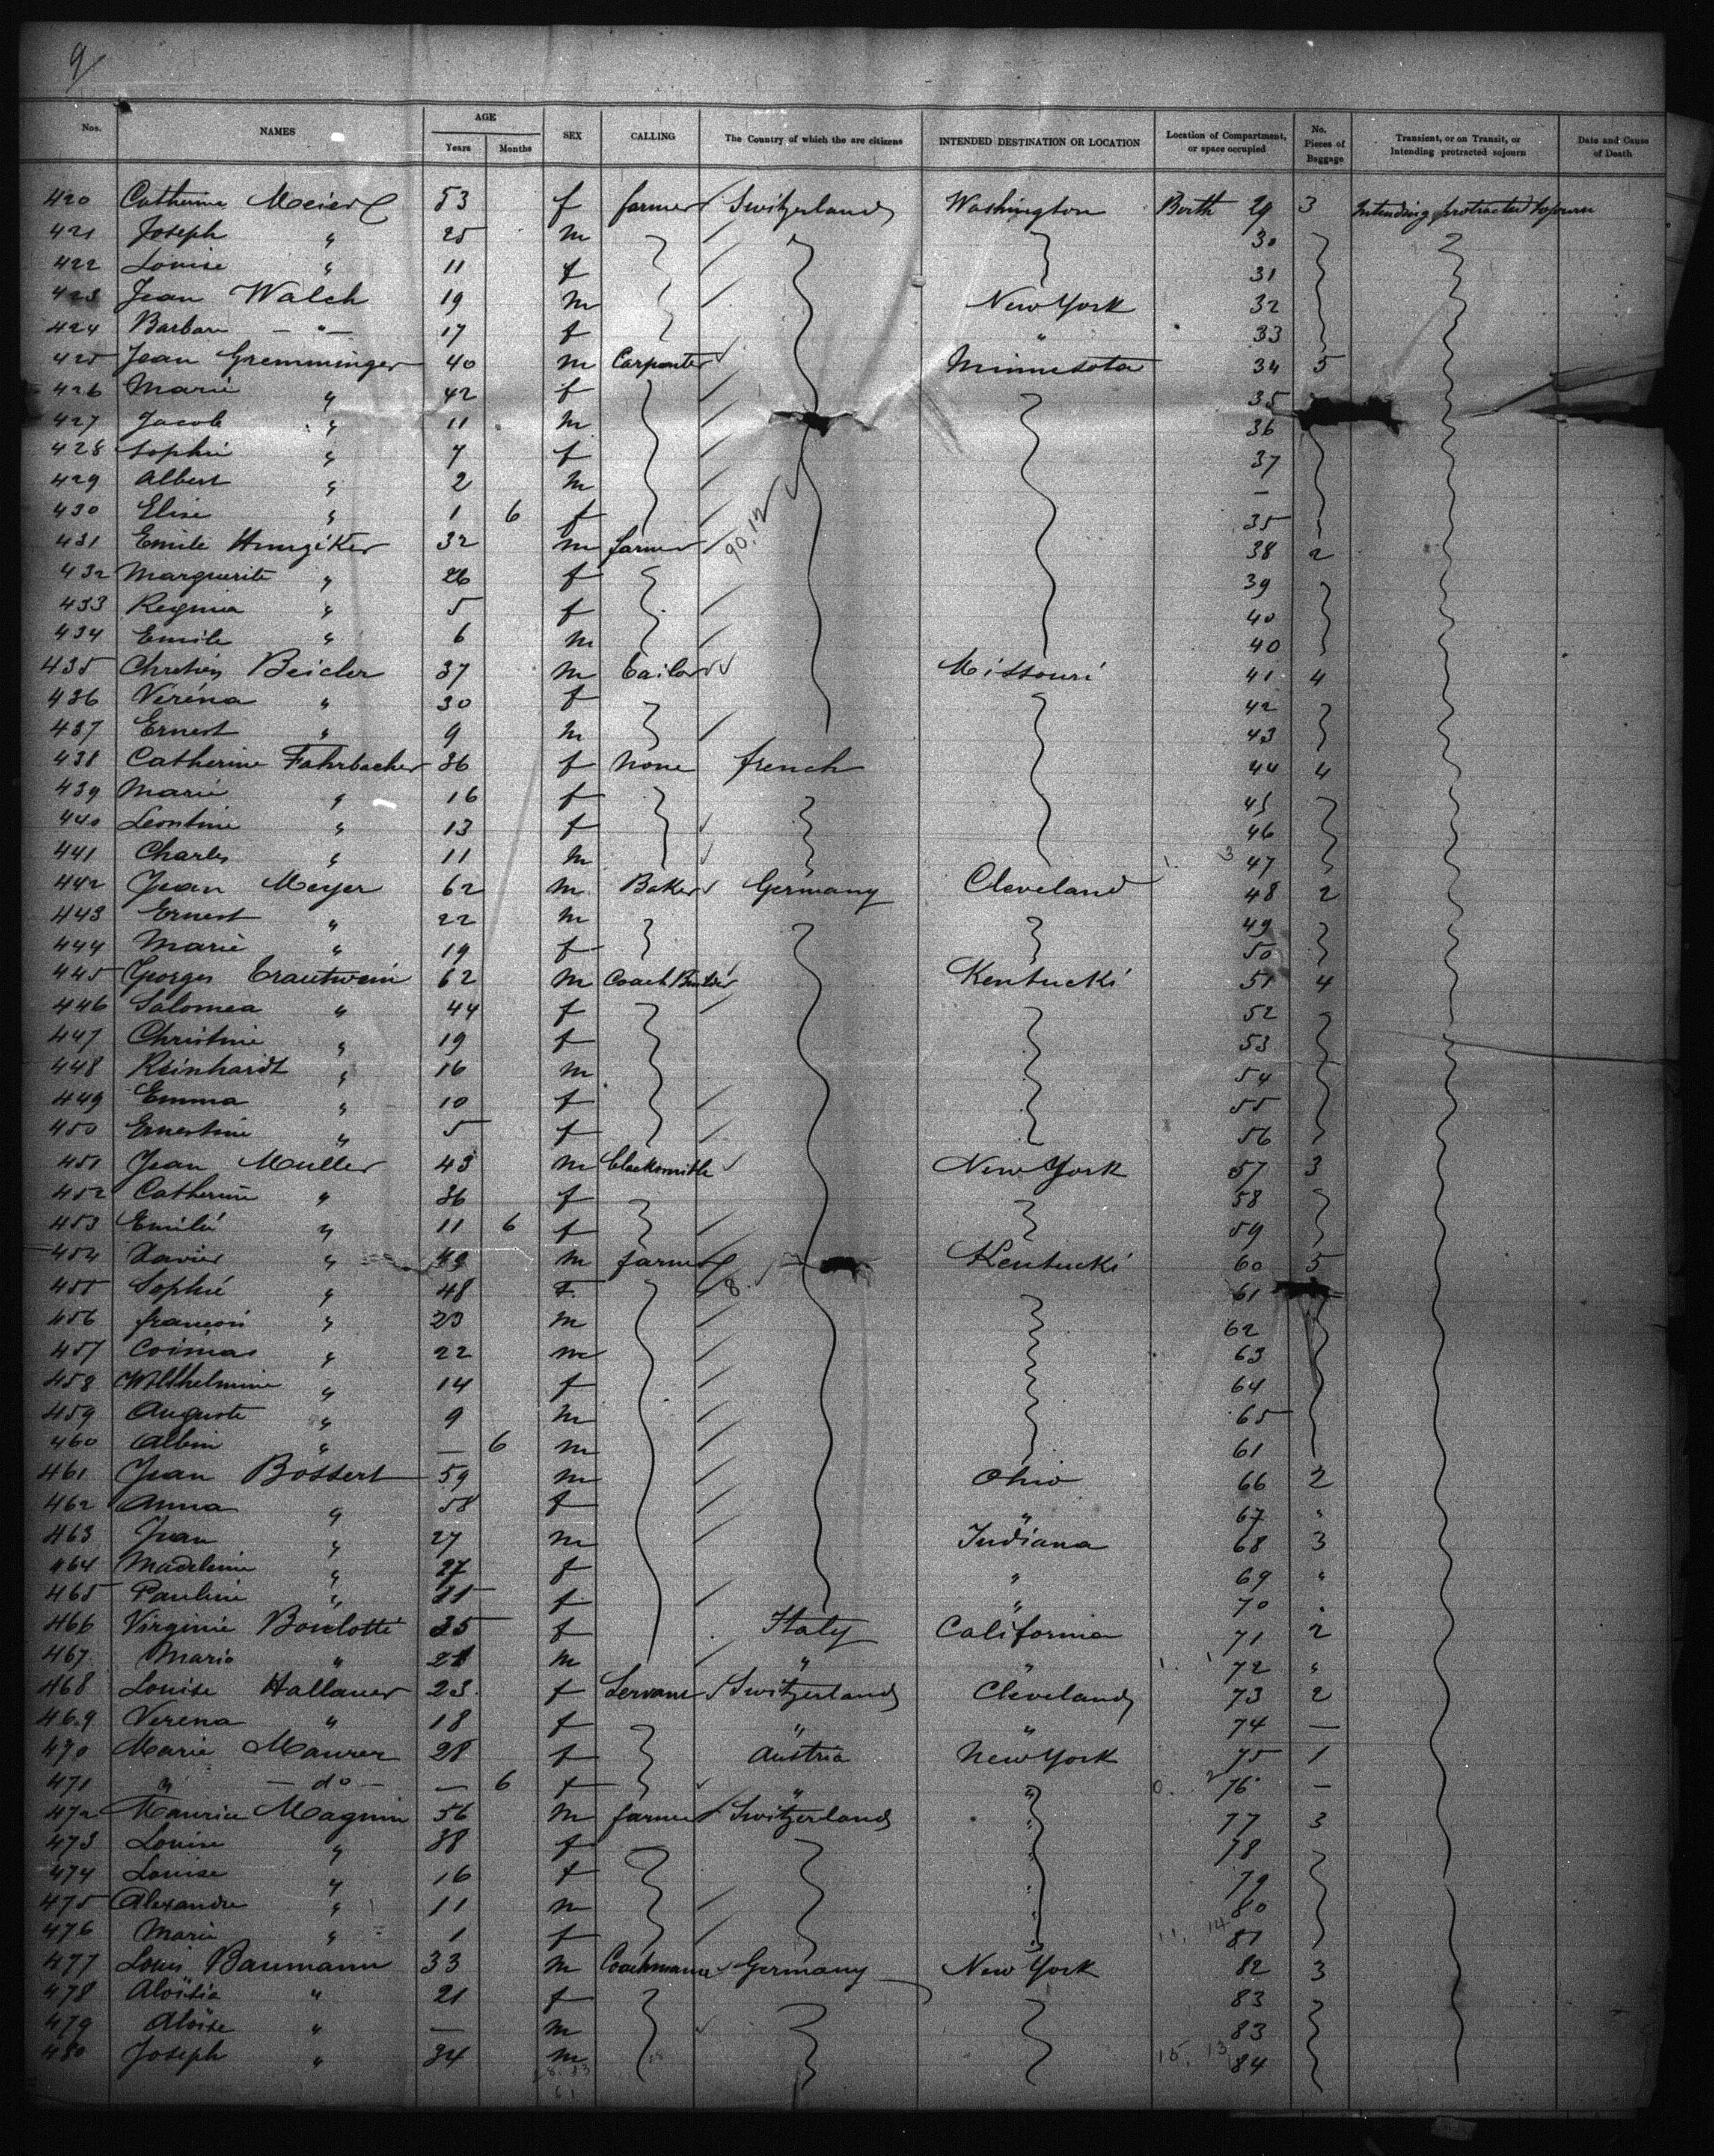 9
Nos. NAMES AGE Years Months SEX CALLING The Country of which the are citizens INTENDED DESTINATION OR LOCATION Location of Compartment, or space occupied No. Pieces of Baggage Transient, or on Transit, or Intending protracted sojourn Date and Cause of Death
420 Catherine Meier 53 f farmer Switzerland Washington Berth 29 3 Intending protracted sojourn
421 Joseph " 25 m 30
422 Louise " 11 f 31
423 Jean Walch 19 m New York 32
424 Barbara — " — 17 f " 33
425 Jean Gremminger 40 m Carpenter Minnesota 34 5
426 Marie " 42 f 35
427 Jacob " 11 m 36
428 Sophie " 7 f 37
429 Albert " 2 m —
430 Elise " 1 6 f 35
431 Emile Hunziker 32 m farmer 38 2
432 Marguerite " 26 f 39
433 Regina " 5 f 40
434 Emile " 6 m 40
435 Chretien Beicler 37 m tailor Missouri 41 4
436 Veréna " 30 f 42
437 Ernest " 9 m 43
438 Catherine Fahrbacher 36 f none french 44 4
439 Marie " 16 f 45
440 Leontine " 13 f 46
441 Charles " 11 m 47
442 Jean Meyer 62 m Baker Germany Cleveland 48 2
443 Ernest " 22 m 49
444 Marie " 19 f 50
445 Georges Trautwein 62 m Coach Builder Kentucki 51 4
446 Salomea " 44 f 52
447 Christine " 19 f 53
448 Reinhardt " 16 m 54
449 Emma " 10 f 55
450 Ernestine " 5 f 56
451 Jean Muller 43 m blacksmith New York 57 3
452 Catherine " 36 f 58
453 Emilie " 11 6 f 59
454 Xavier " 49 m farmer Kentucki 60 5
455 Sophie " 48 F. 61
456 françois " 23 m 62
457 " 22 m 63
458 Willhelmine " 14 f 64
459 Auguste " 9 m 65
460 Albin " — 6 m 61
461 Jean Bossert 59 m Ohio 66 2
462 Anna " 58 f " 67 "
463 Jean " 27 m Indiana 68 3
464 Madeleine " 27 f " 69 "
465 Pauline " f " 70 "
466 Virginie 25 f Italy California 71 2
467 Mario " m " " 72 "
468 Louise Hallauer 23 f Servant Switzerland Cleveland 73 2
469 Verena " 18 f " " 74 —
470 Marie Maurer 28 f Austria New York 75 1
471 " — do — — 6 f " " 76 —
472 Maurice Magnin 56 m farmer Switzerland " 77 3
473 Louise " 38 f 78
474 Louise " 16 f 79
475 Alexandre " 11 m 80
476 Marie " 1 f 81
477 Louis Baumann 33 m Coachmann Germany New York 82 3
478 Aloïsia " 21 f 83
479 Aloïse " — m 83
480 Joseph " 34 m 84